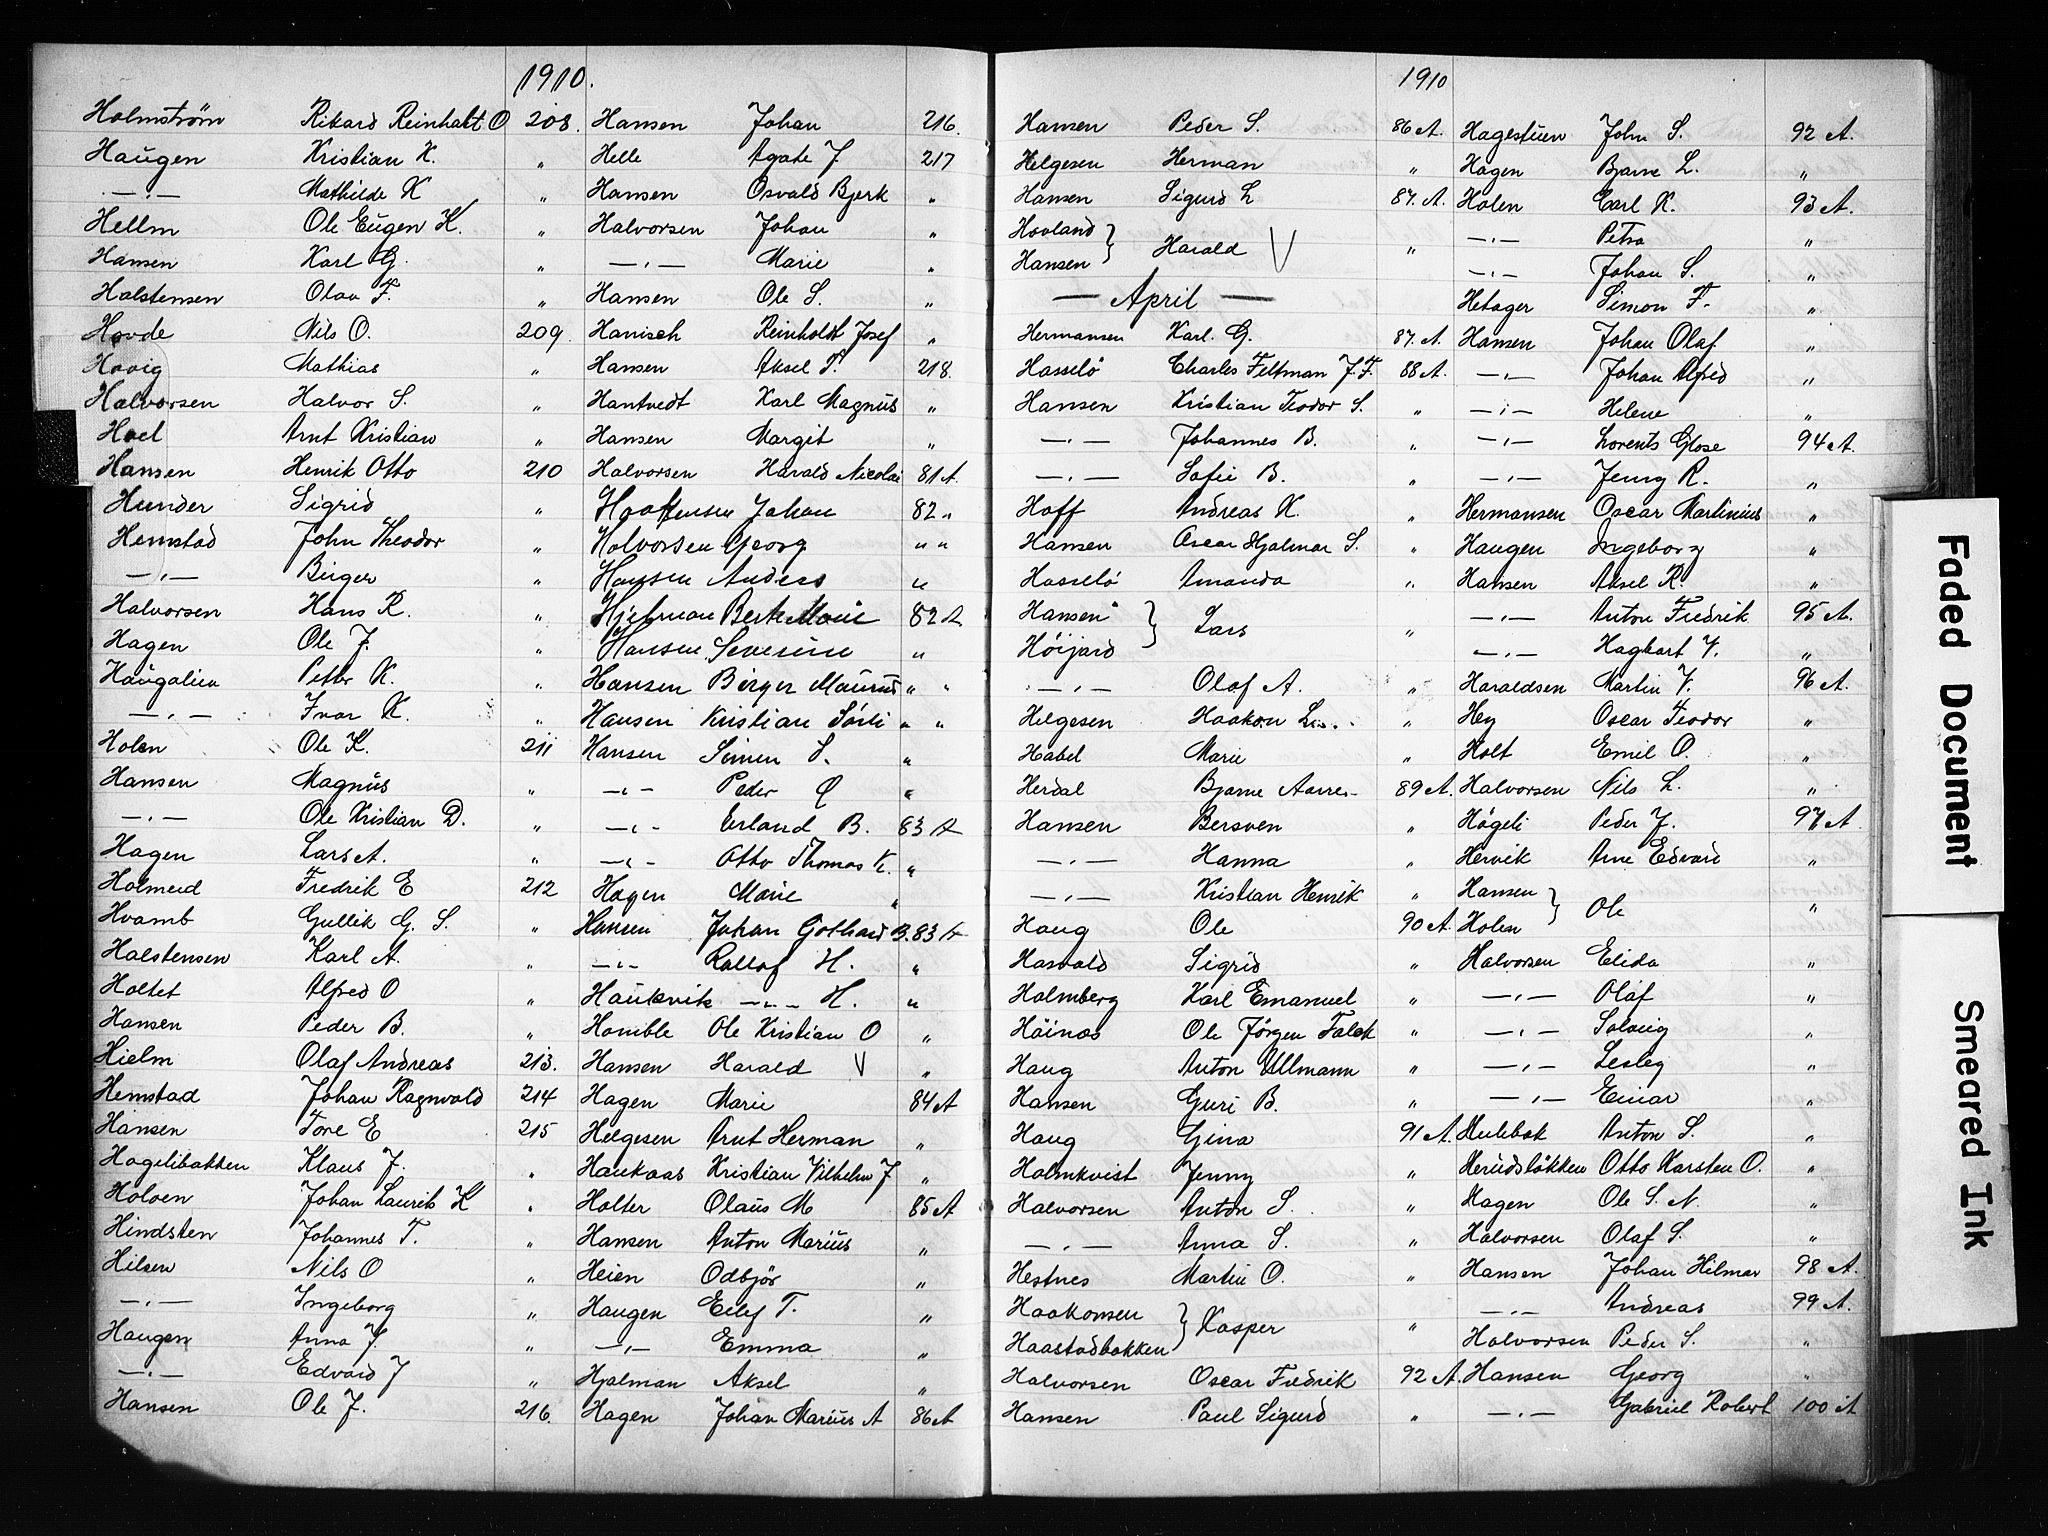 1910.
Holmstrøm Rikard Reinhalt O 208.
Haugen Kristian K. "
—"— Mathilde K "
Hellm Ole Eugen K. "
Hansen Karl G. "
Halstensen Olav F. "
Hovde Nils O. 209.
Hovig Mathias "
Halvorsen Halvor S. "
Hoel Arnt Kristian "
Hansen Henrik Otto 210
Hunder Sigrid "
Hemstad John Theodor "
—"— Birger "
Halvorsen Hans R. "
Hagen Ole J. "
Haugalien Petter K. "
—"— Ivar K. "
Holen Ole K. 211
Hansen Magnus "
—"— Ole Kristian D. "
Hagen Lars A. "
Holmeid Fredrik E 212
Hvamb Gullik G. S. "
Halstensen Karl A. "
Holtet Alfred O "
Hansen Peder B. "
Hielm Olaf Andreas 213.
Hemstad Johan Ragnvald 214
Hansen Tore E 215
Hagelibakken Klaus J. "
Holven Johan Laurits K "
Hindsten Johannes T. "
Hilsen Nils O "
—"— Ingeborg "
Haugen Anna J. "
—"— Edvard J "
Hansen Ole J. 216.
Hansen Johan 216.
Helle Agate J 217
Hansen Osvald Bjerk "
Halvorsen Johan "
—"— Marie "
Hansen Ole S. "
Hanisch Reinholdt Josef "
Hansen Aksel F. 218.
Hantvedt Karl Magnus "
Hansen Margit "
Halvorsen Harald Nicolai 81 A.
Haakensen Johan 82 "
Halvorsen Georg " "
Hansen Anders "
Hjelman Berte Marie 82 A
Hansen Severine "
Hansen Birger Maurus " "
Hansen Kristian Sørli " "
Hansen Simen S. "
—"— Peder O "
—"— Erland B. 83 A
—"— Otto Thomas K. "
Hagen Marie "
Hansen Johan Gothard B. 83 A
—"— Rollof H. "
Haukvik —"— H. "
Honible Ole Kristian O "
Hansen Harald V "
Hagen Marie 84 A
Helgesen Arnt Herman "
Haukaas Kristian Vilhelm J "
Holter Olaus M 85 A
Hansen Anton Marius "
Heien Odbjør "
Haugen Eilif T. "
—"— Emma "
Hjalman Aksel "
Hagen Johan Marius A 86 A
1910
Hansen Peder S. 86 A.
Helgesen Herman "
Hansen Sigurd L 87. A.
Hovland } Harald V "
Hansen }
— April —
Hermansen Karl. G. 87. A.
Hasselø Charles Feltman J. F. 88 A.
Hansen Kristian Teodor S. "
—"— Johannes B. "
—"— Sofie B. "
Hoff Andreas K. "
Hansen Oscar Hjalmar S. "
Hasselø Amanda "
Hansen } Lars "
Høijord }
—"— Olaf A. "
Helgesen Haakon L. "
Habel Marie "
Herdal Bjarne Aarre- 89 A.
Hansen Bersven "
—"— Hanna "
—"— Kristian Henrik "
Haug Ole 90 A.
Hasvold Sigrid "
Holmberg Karl Emanuel "
Høinæs Ole Jørgen Falck "
Haug Anton Ullmann "
Hansen Guri B. "
Haug Gina 91 A.
Holmkvist Jenny "
Halvorsen Anton S. "
—"— Anna S. "
Hestnes Martin O. "
Haakonsen } Kasper "
Haastadbakken }
Halvorsen Oscar Fredrik 92 A.
Hansen Paul Sigurd "
Hagestuen John S. 92 A.
Hagen Bjarne L. "
Holen Carl K. 93 A.
—"— Petra "
—"— Johan S. "
Hetager Simon F. "
Hansen Johan Olaf "
—"— Johan Alfred "
—"— Helene "
—"— Lorents Gjøse 94 A.
—"— Jenny R. "
Hermansen Oscar Martinius "
Haugen Ingeborg "
Hansen Aksel R. "
—"— Anton Fredrik 95 A.
—"— Hagbart V. "
Haraldsen Martin V. 96 A.
Hey Oscar Teodor "
Holt Emil O. "
Halvorsen Nils L. "
Høgeli Peder J. 97 A.
Hervik Arne Edvard "
Hansen } Ole "
Holen }
Halvorsen Elida "
—"— Olaf "
—"— Solveig "
—"— Lesley "
—"— Einar "
Mulebak Anton S. "
Herudsløkken Otto Karsten O. "
Hagen Ole S. N. "
Halvorsen Olaf S. "
Hansen Johan Hilmar 98 A.
—"— Andreas 99 A.
Halvorsen Peder S. "
Hansen Georg "
—"— Gabriel Robert 100 A
Faded Document
Smeared Ink